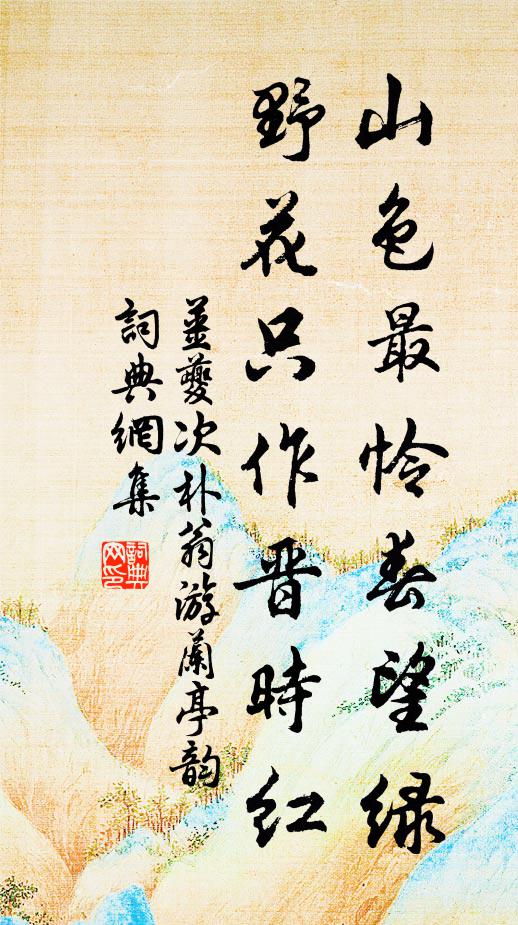 山色最怜春望緑
野花只作晋時红
薑夔次朴翁游蘭亭韵
詞典網集
詞典网印